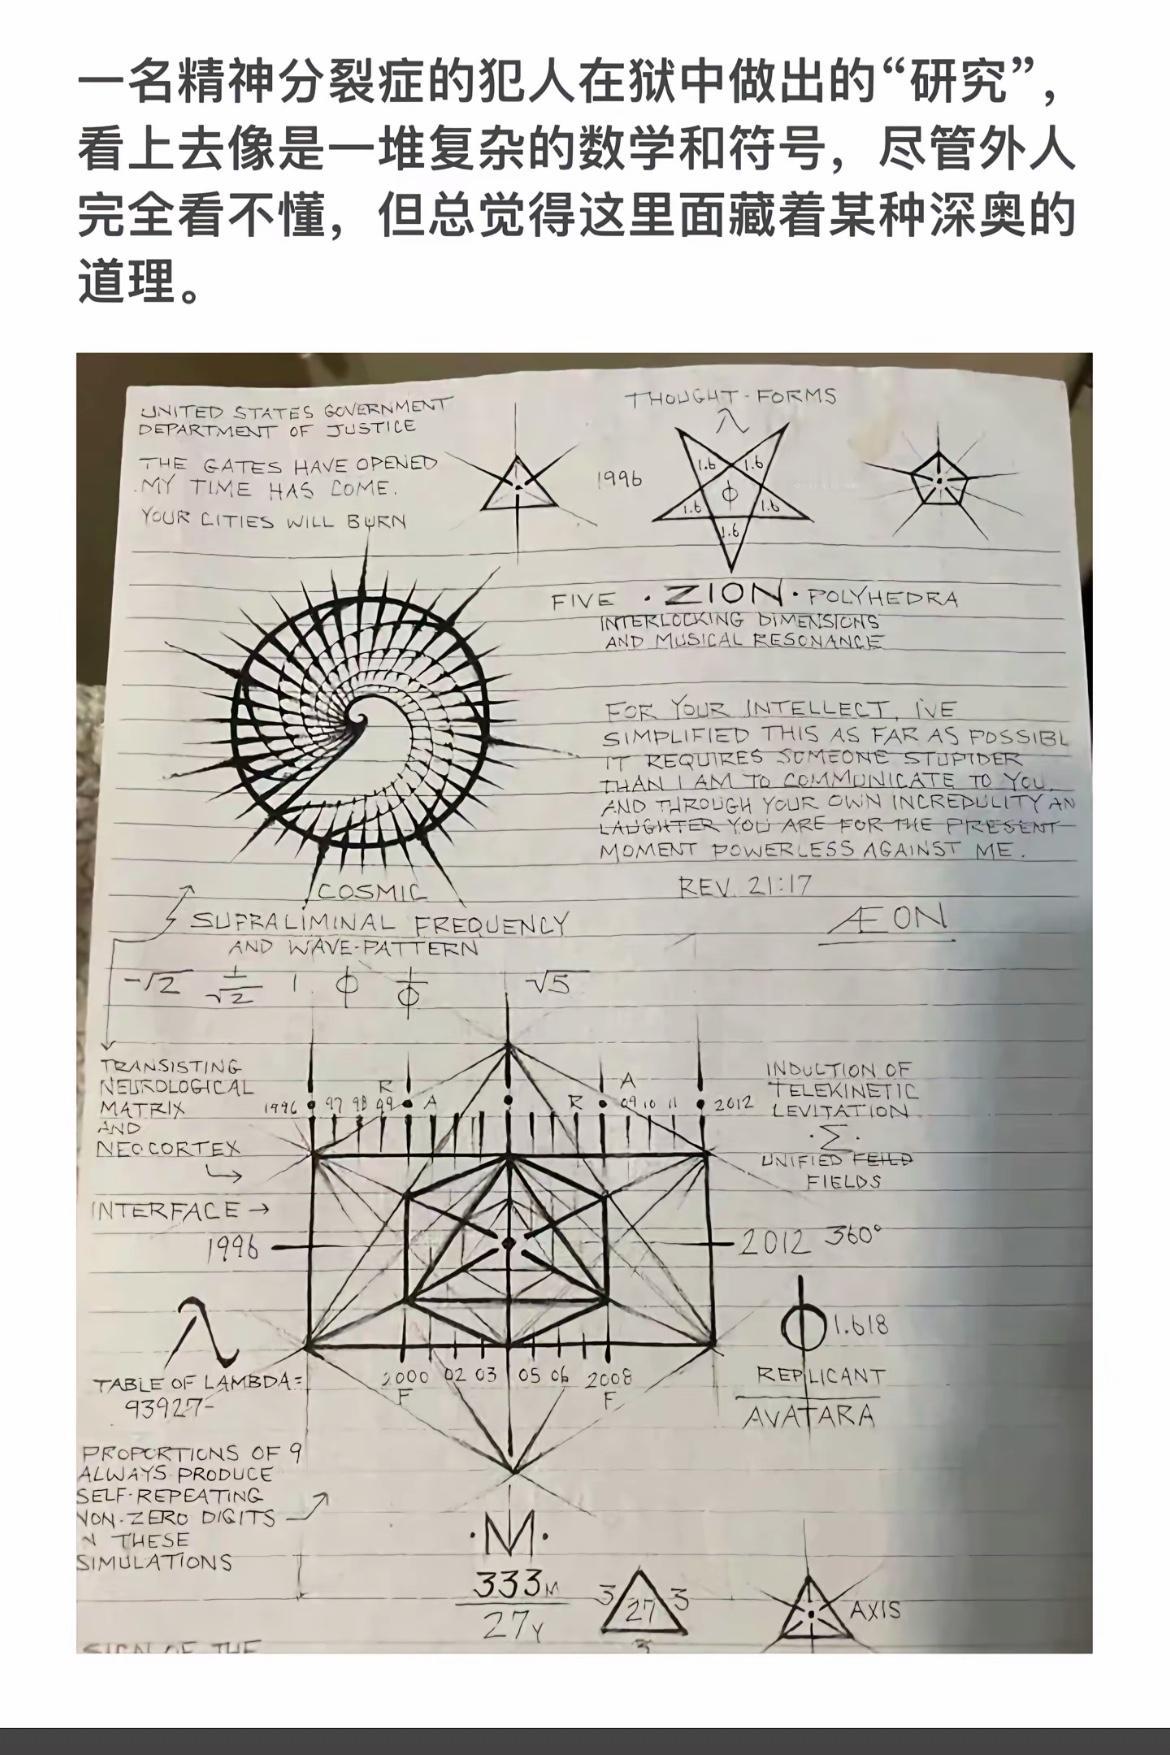 一名精神分裂症的犯人在狱中做出的“研究”，
看上去像是一堆复杂的数学和符号，尽管外人
完全看不懂，但总觉得这里面藏着某种深奥的
道理。
UNITED STATES GOVERNMENT
DEPARTMENT OF JUSTICE
THE GATES HAVE OPENED
MY TIME HAS COME.
YOUR CITIES WILL BURN
THOUGHT-FORMS
λ
1996
1.6 1.6
φ
1.6 1.6
1.6
FIVE · ZION · POLYHEDRA
INTERLOCKING DIMENSIONS
AND MUSICAL RESONANCE
FOR YOUR INTELLECT, I'VE
SIMPLIFIED THIS AS FAR AS POSSIBL
IT REQUIRES SOMEONE STUPIDER
THAN I AM TO COMMUNICATE TO YOU.
AND THROUGH YOUR OWN INCREDULITY AN
LAUGHTER YOU ARE FOR THE PRESENT
MOMENT POWERLESS AGAINST ME.
REV. 21:17
ÆON
COSMIC
SUPRALIMINAL FREQUENCY
AND WAVE-PATTERN
-√2 1/√2 1 φ 1/φ √5
TRANSISTING
NEUROLOGICAL
MATRIX
AND
NEOCORTEX
INTERFACE →
1996
R A R A
1996 97 98 99 09 10 11 2012
INDUCTION OF
TELEKINETIC
LEVITATION
·Σ·
UNIFIED FEILD
FIELDS
2012 360°
φ 1.618
REPLICANT
AVATARA
2000 02 03 05 06 2008
F F
λ
TABLE OF LAMBDA=
93927-
PROPORTIONS OF 9
ALWAYS PRODUCE
SELF-REPEATING
NON-ZERO DIGITS
N THESE
SIMULATIONS
·M·
333M
27Y
3 27 3
3
AXIS
SIGN OF THE